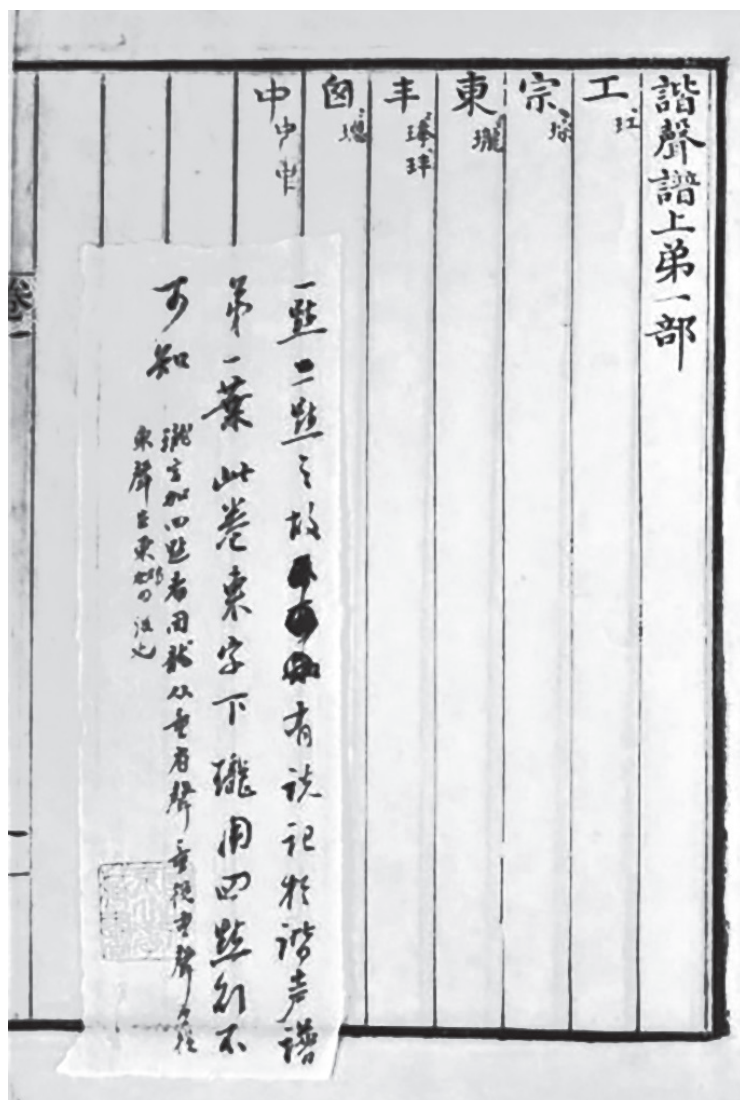 諧聲譜上弟一部
工 玒
宗 琮
東 瓏
丰 琫玤
囪 璁
中 中 中
一點二點之故有說記於諧声譜
第一葉此卷東字下瓏用四點則不
可知
瓏字加四點者因龍从童省聲童從重聲
東聲 東 也
卷一
一